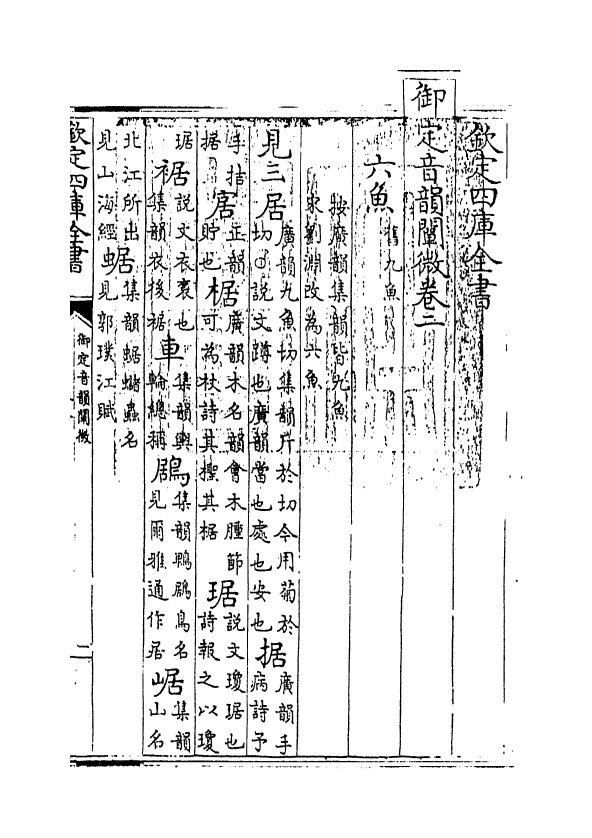 欽定四庫全書
御定音韻闡微卷二
六魚舊九魚
按廣韻集韻皆九魚
宋劉淵改為六魚
見三居廣韻九魚切集韻斤於切今用菊於切○說文蹲也廣韻當也處也安也据廣韻手病詩予
手拮据 正韻貯也椐廣韻木名韻會木腫節可為杖詩其檉其椐琚說文瓊琚也詩報之以瓊
琚裾說文衣袌也集韻衣後裾車集韻輿輪總稱鶋集韻鴨鶋鳥名見爾雅通作居崌集韻山名
北江所出見山海經蜛集韻蜛蝫蟲名見郭璞江賦
欽定四庫全書
御定音韻闡微
二